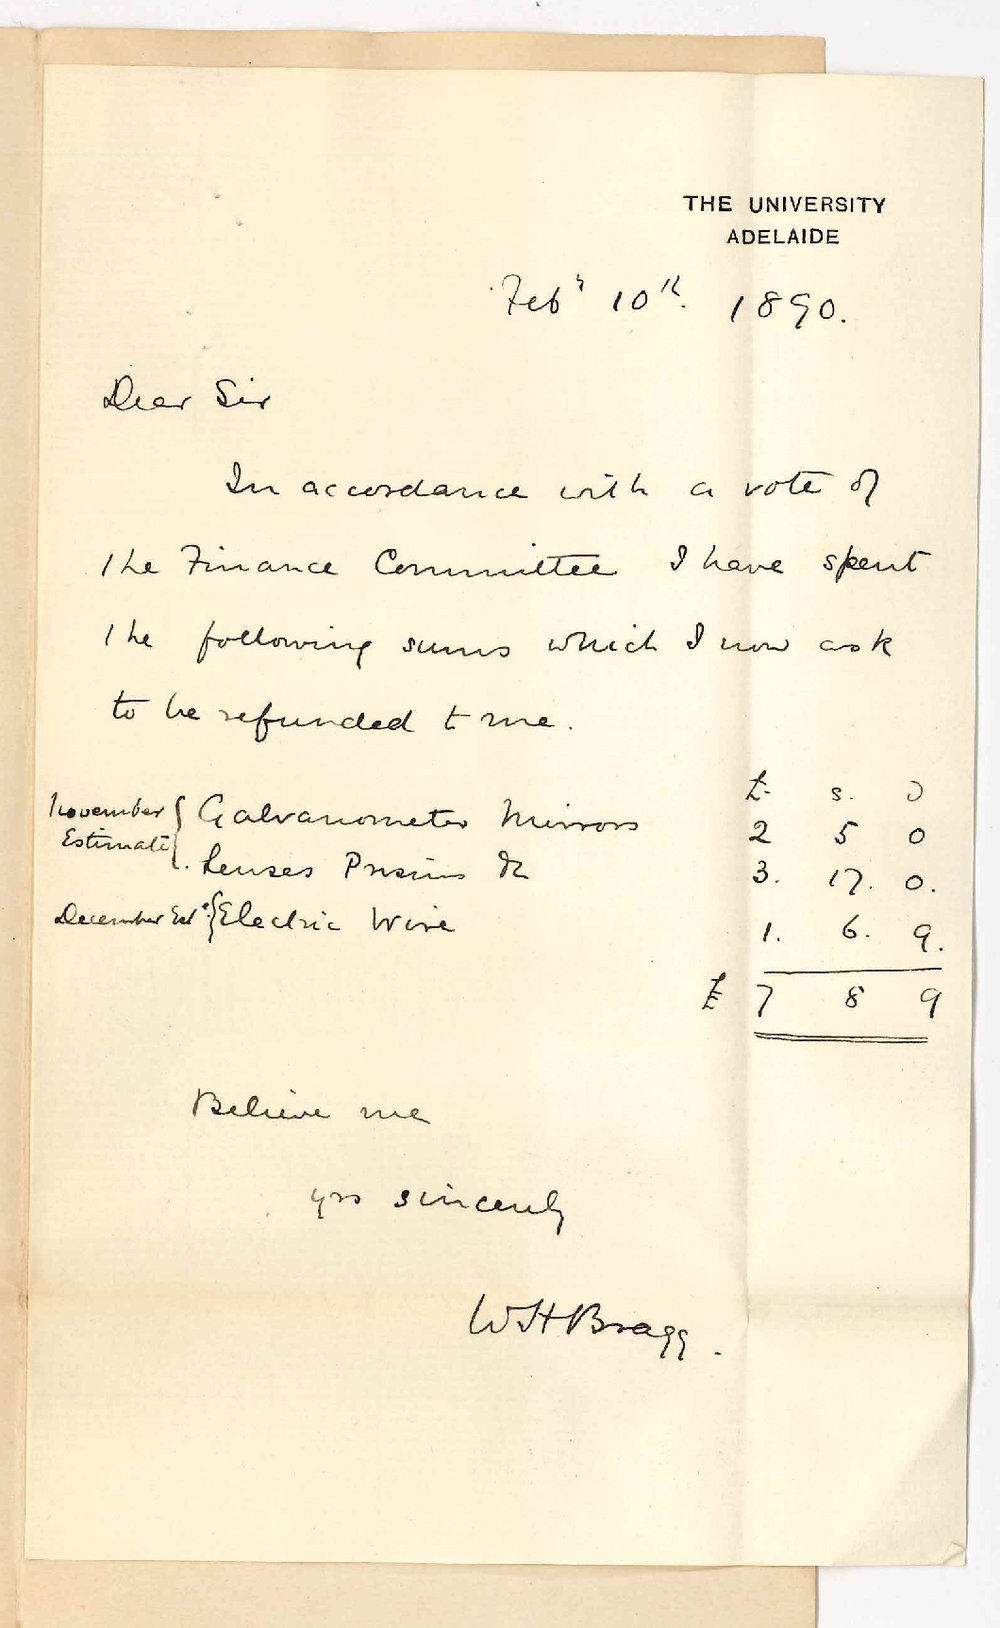 THE UNIVERSITY
ADELAIDE
Feby 10th. 1890.
Dear Sir
In accordance with a vote of
the Finance Committee I have spent
the following sums which I now ask
to be refunded to me.
£. s. D
November Estimate { Galvanometer Mirrors 2 5 0
Lenses Prisms &c 3. 17. 0.
December Est.e { Electric Wire 1. 6. 9.
£ 7 8 9
Believe me
yrs sincerely
WHBragg.